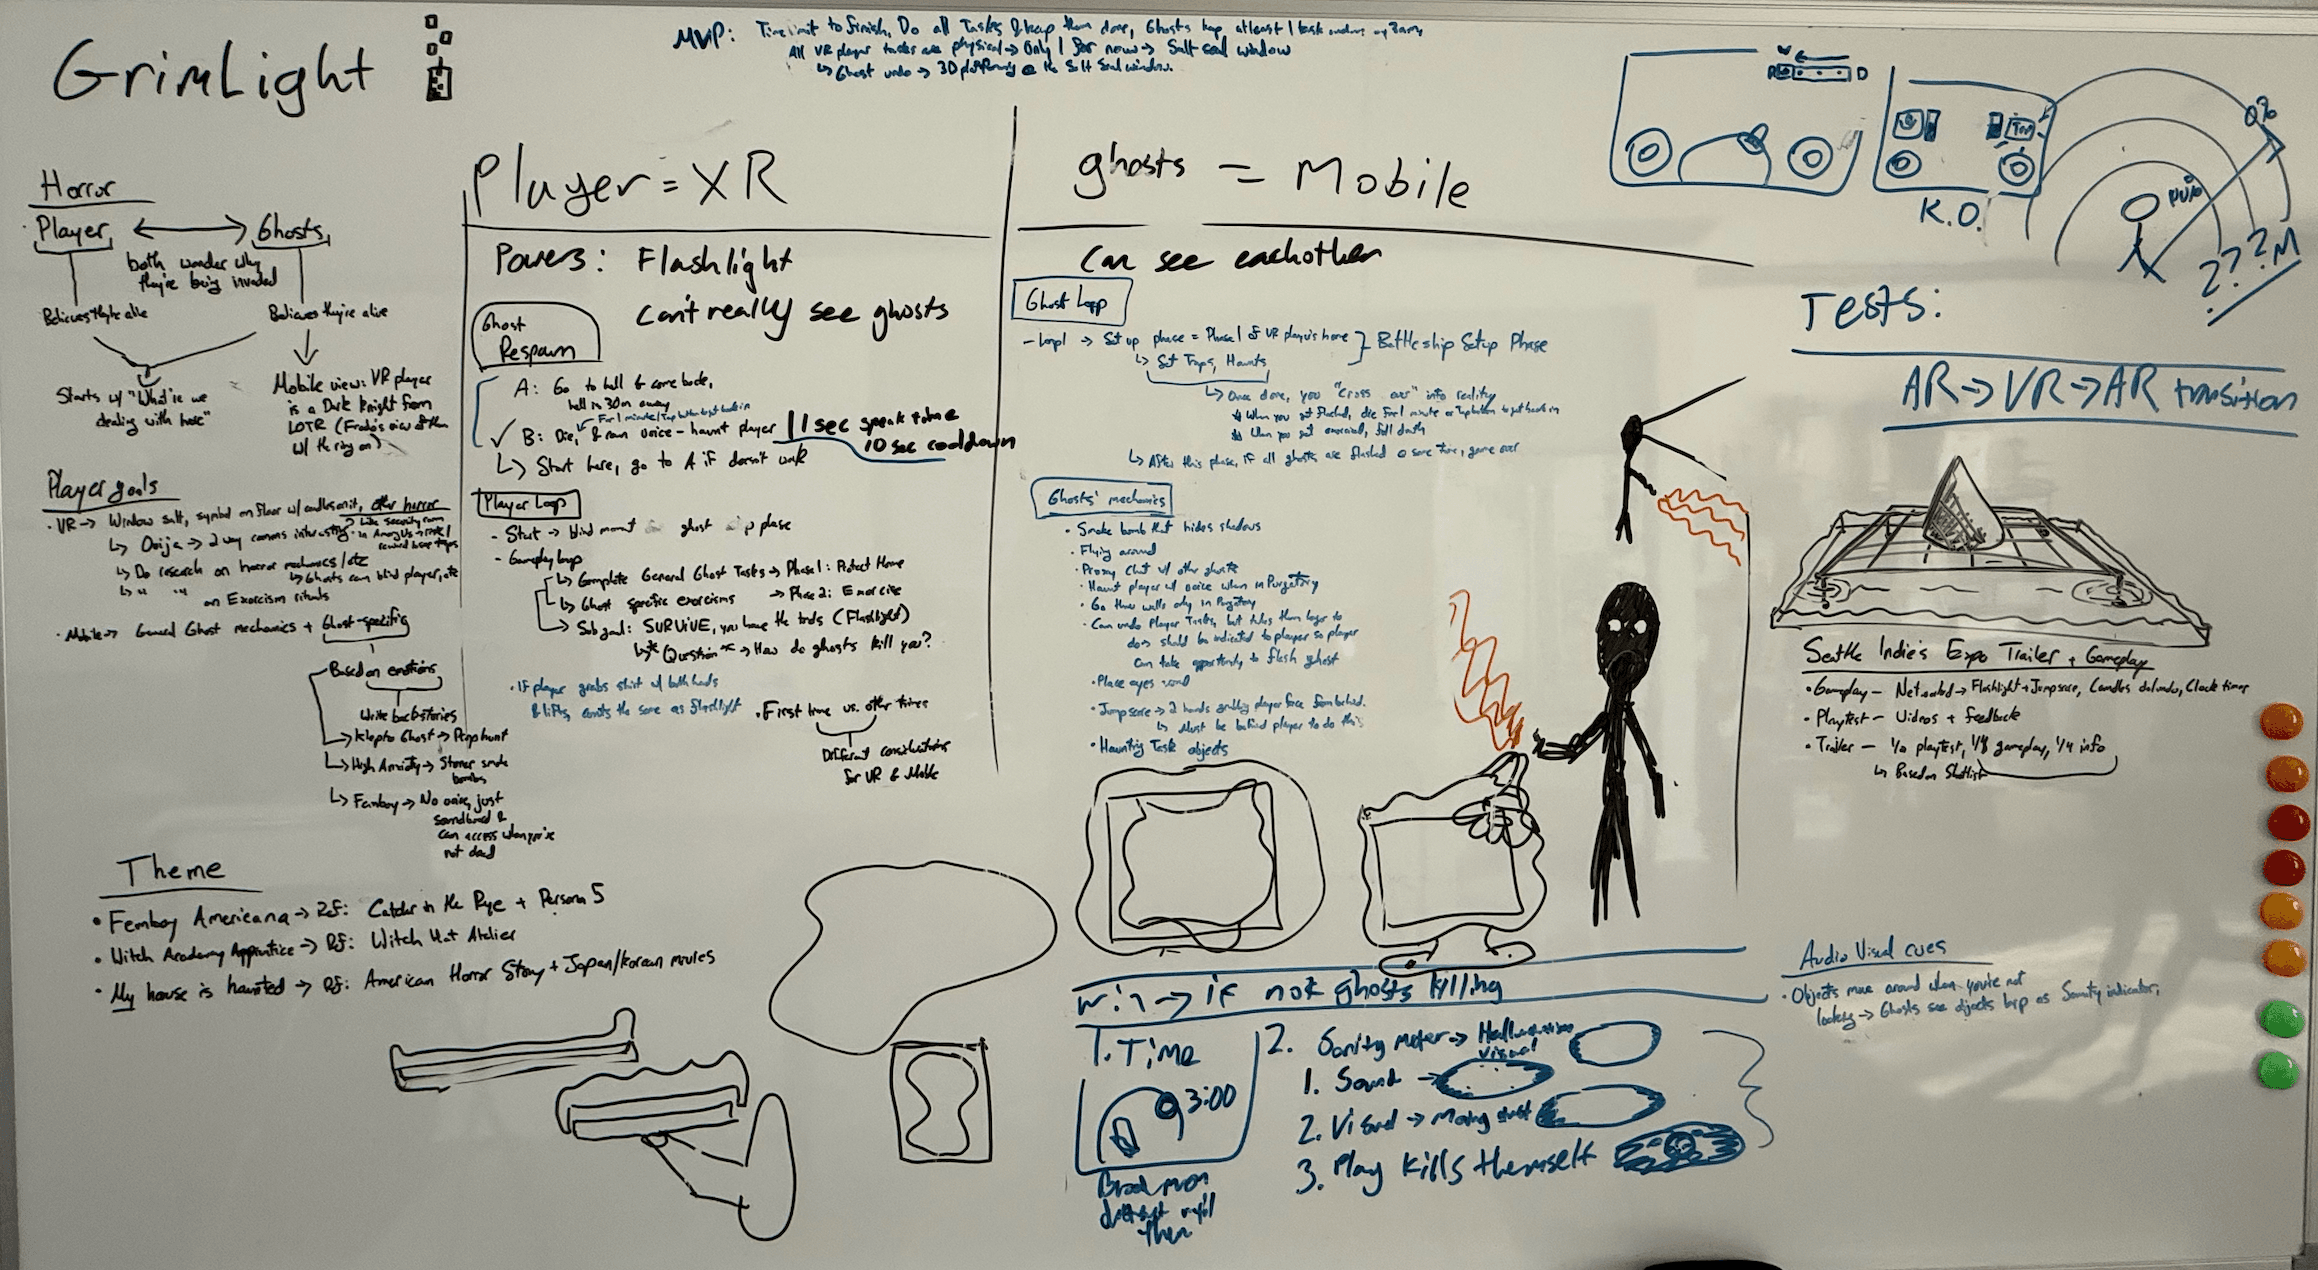 GrimLight
MVP: Time limit to finish, Do all Tasks & keep them done, Ghosts keep at least 1 task undone by 3am,
All VR player tasks are physical → Only 1 for now → Salt seal window
↳ Ghost undo → 3D platforming @ the Salt Seal window.
Horror
Player ↔ Ghosts
both wonder why
they're being invaded
Believes they're alive
Believes they're alive
Starts w/ "What're we
dealing with here"
Mobile view: VR player
is a Dark Knight from
LOTR (Frodo's view of them
w/ the ring on)
Player goals
• VR → Window salt, symbol on floor w/ candles on it, other horror
↳ Ouija → 2 way comms interesting?
Like security room
in Among Us →
↳ Do research on horror mechanics/etc
↳ Ghosts can blind player, etc
↳ " " on Exorcism rituals
• Mobile → General Ghost mechanics + Ghost-specific
Based on emotions
Write backstories
↳ Klepto Ghost → Prop hunt
↳ High Anxiety → Stoner smoke
bombs
↳ Femboy → No voice, just
soundboard &
can access when you're
not dead
Theme
• Femboy Americana → Ref: Catcher in the Rye + Persona 5
• Witch Academy Apprentice → Ref: Witch Hat Atelier
• My house is haunted → Ref: American Horror Story + Japan/Korean movies
Player = XR
Powers: Flashlight
can't really see ghosts
Ghost
Respawn
A: Go to hell & come back,
hell is 30m away
← For 1 minute/Tap button to get back in
✓ B: Die, & can voice-haunt player | 1 sec speak time
10 sec cooldown
↳ Start here, go to A if doesn't work
Player Loop
- Start → blind moment ghost phase
- Gameplay loop
↳ Complete General Ghost Tasks → Phase 1: Protect Home
↳ Ghost specific exorcisms → Phase 2: Exorcise
↳ Sub goal: SURVIVE, you have the tools (Flashlight)
↳ *Question* → How do ghosts kill you?
• If player grabs shirt w/ both hands
& lifts, counts the same as flashlight
• First time vs. other times
Different considerations
for VR & Mobile
ghosts = Mobile
Can see eachother
Ghost Loop
- Loop 1 → Set up phase = Phase 1 of VR player's home } Battleship Setup Phase
↳ Set Traps, Haunts
↳ Once done, you "cross over" into reality
* When you get flashed, die for 1 minute or Tap button to get back in
* When you get exorcised, full death
↳ After this phase, if all ghosts are flashed @ same time, game over
Ghosts' mechanics
• Smoke bomb that hides shadows
• Flying around
• Proxy Chat w/ other ghosts
• Haunt player w/ voice when in Purgatory
• Go thru walls only in Purgatory
• Can undo Player Tasks, but takes them longer to
do → should be indicated to player so player
can take opportunity to flash ghost
• Place eyes
• Jumpscare → 2 hands grabbing player face from behind.
↳ Must be behind player to do this
• Haunting Task objects
win → if not ghosts killing
1. Time
3:00
2. Sanity meter → Hallucinations
visual
1. Sound →
2. Visual → Moving
3. Play kills themself
R D
K.O.
0%
???M
Tests:
AR → VR → AR transition
Seattle Indie's Expo Trailer + Gameplay
• Gameplay - Networked → Flashlight + Jumpscare, Candles, Clock timer
• Playtest - Videos + Feedback
• Trailer - playtest, gameplay, 1/4 info
↳ Based on Shotlist
Audio Visual cues
• Objects move around when you're not
looking → Ghosts see objects lerp as Sanity indicator,